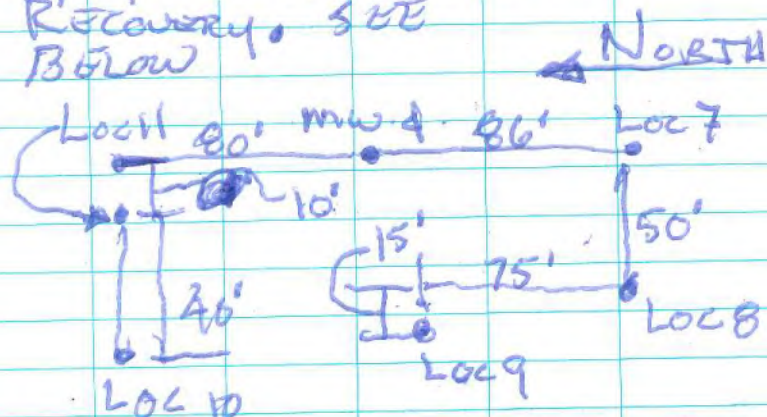 RECOVERY. SEE
BELOW
NORTH
LOC 11 80' MW-4 86' LOC 7
10'
15' 50'
75'
40'
LOC 8
LOC 9
LOC 10